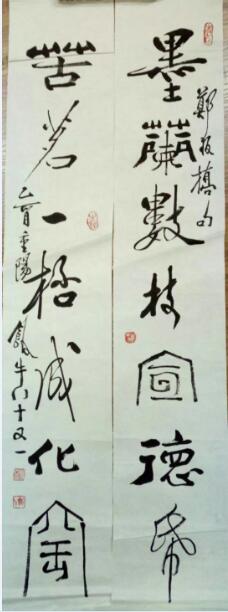 鄭板橋句
墨蘭數枝宣德帋
苦茗一桮成化窑
乙酉重陽 飯牛八十又一